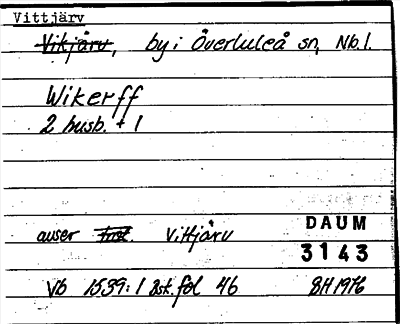 Vittjärv
Vikjärv, by i Överluleå sn, Nb.l.
Wikerff
2 husb. + 1
avser Vittjärv
DAUM
3143
Vb 1539:1 Bsk.föl 46
BH 1976